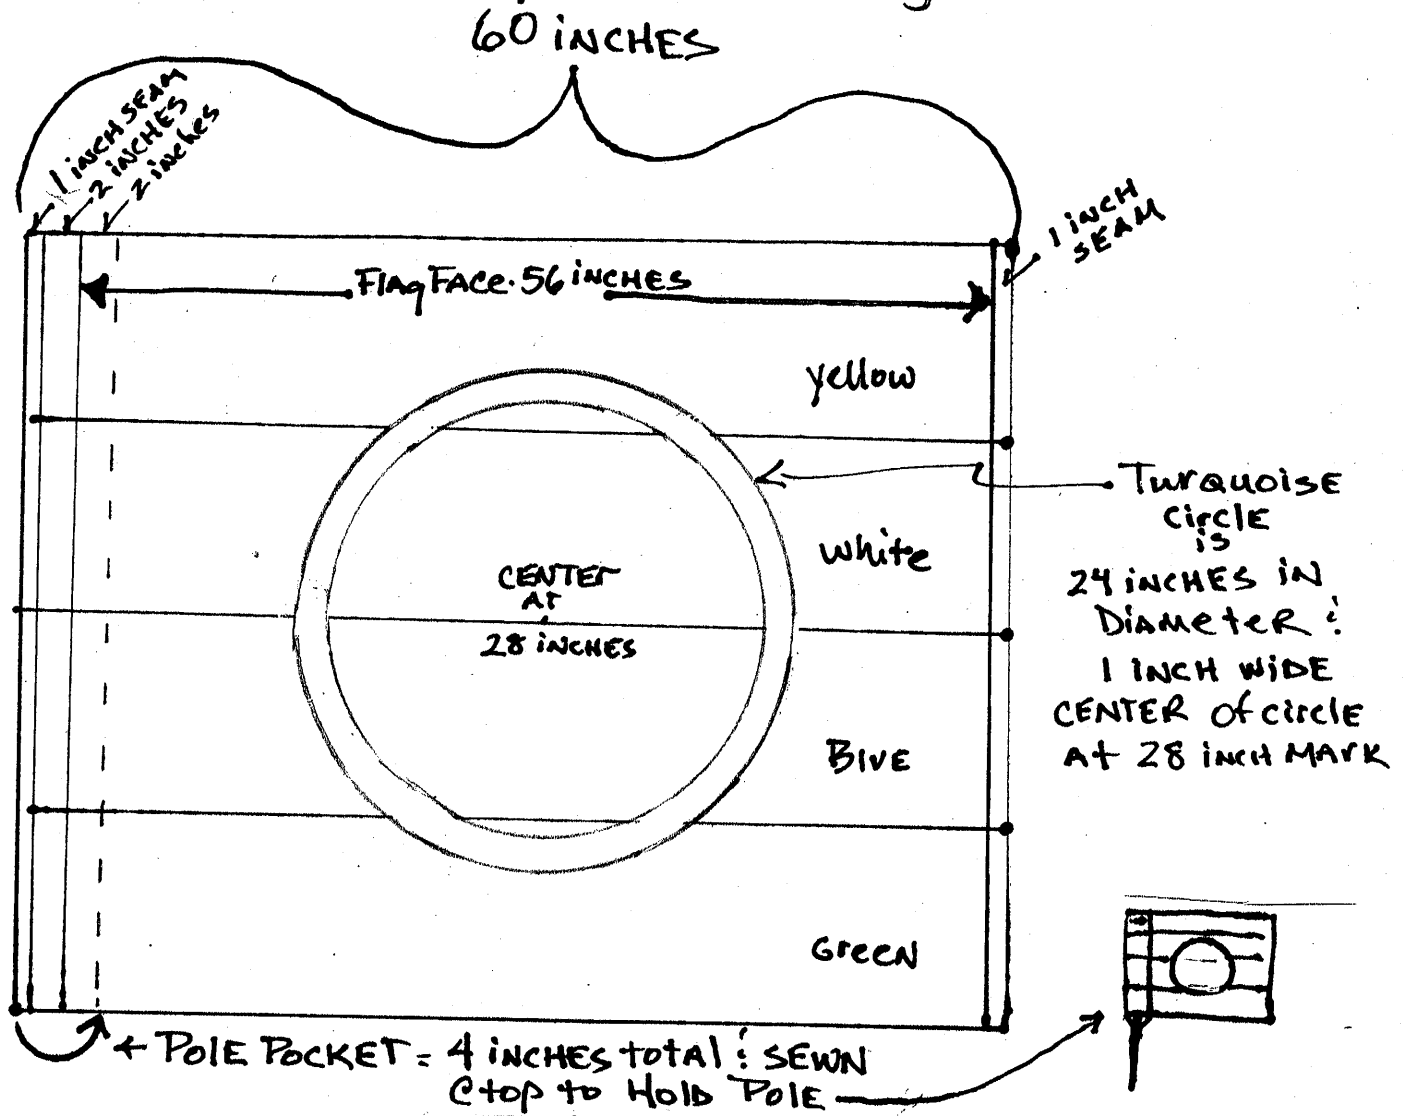 60 iNCHES
1 iNCH SEAM
2 iNCHES
2 inches
1 iNCH
SEAM
Flag FACe. 56 iNCHES
yellow
White
CENTER
AT
28 iNCHES
BlUE
GreeN
TurQuoiSE
CirclE
is
24 iNCHES iN
DiAMeteR &
1 iNCH WiDE
CENTER Of circlE
At 28 iNCH MArK
← PolE POCKET = 4 iNCHES total & SEWN
@ top to HolD PolE